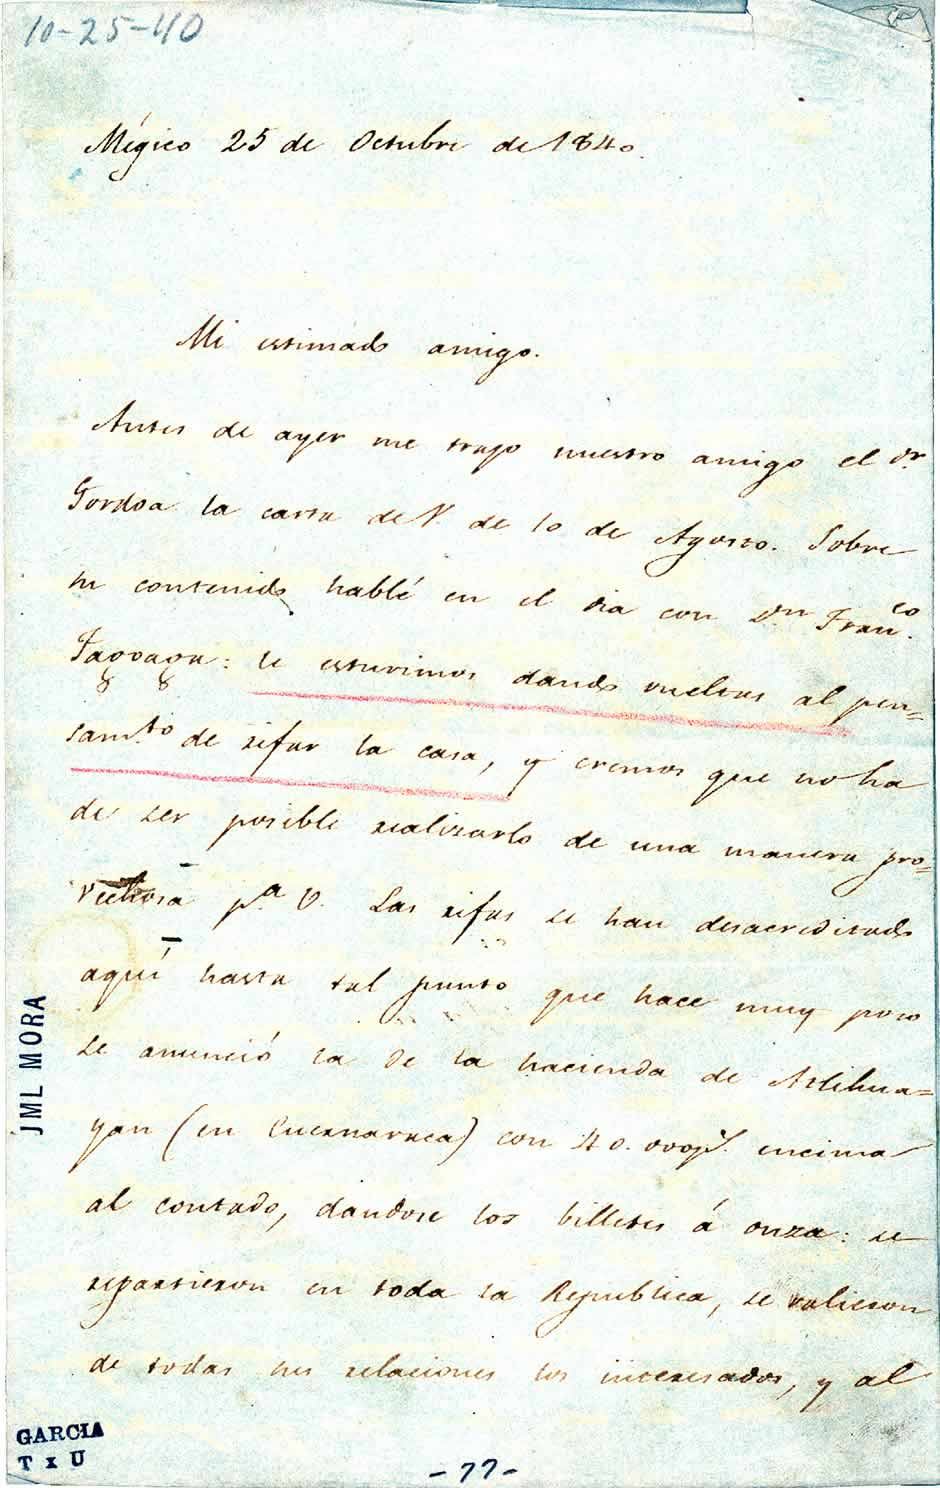 10-25-40
Mégico 25 de Octubre de 1840.
Mi estimado amigo.
Antes de ayer me trajo nuestro amigo el Dr.
Gordoa la carta de V. de 10 de Agosto. Sobre
su contenido hablé en el dia con Dn Franco.
Fagoaga: le estuvimos dando vueltas al pen=
samto. de rifar la casa, y creemos que no ha
de ser posible realizarlo de una manera pro=
vechosa pa. V. Las rifas se han desacreditado
aquí hasta tal punto que hace muy poco
se anunció la de la hacienda de Atlihua=
yan (en Cuernavaca) con 40.000 ps. encima
al contado, dandose los billetes á onza: se
repartieron en toda la Republica, se valieron
de todas sus relaciones los interesados, y al
JML MORA
GARCIA
T x U
-77-